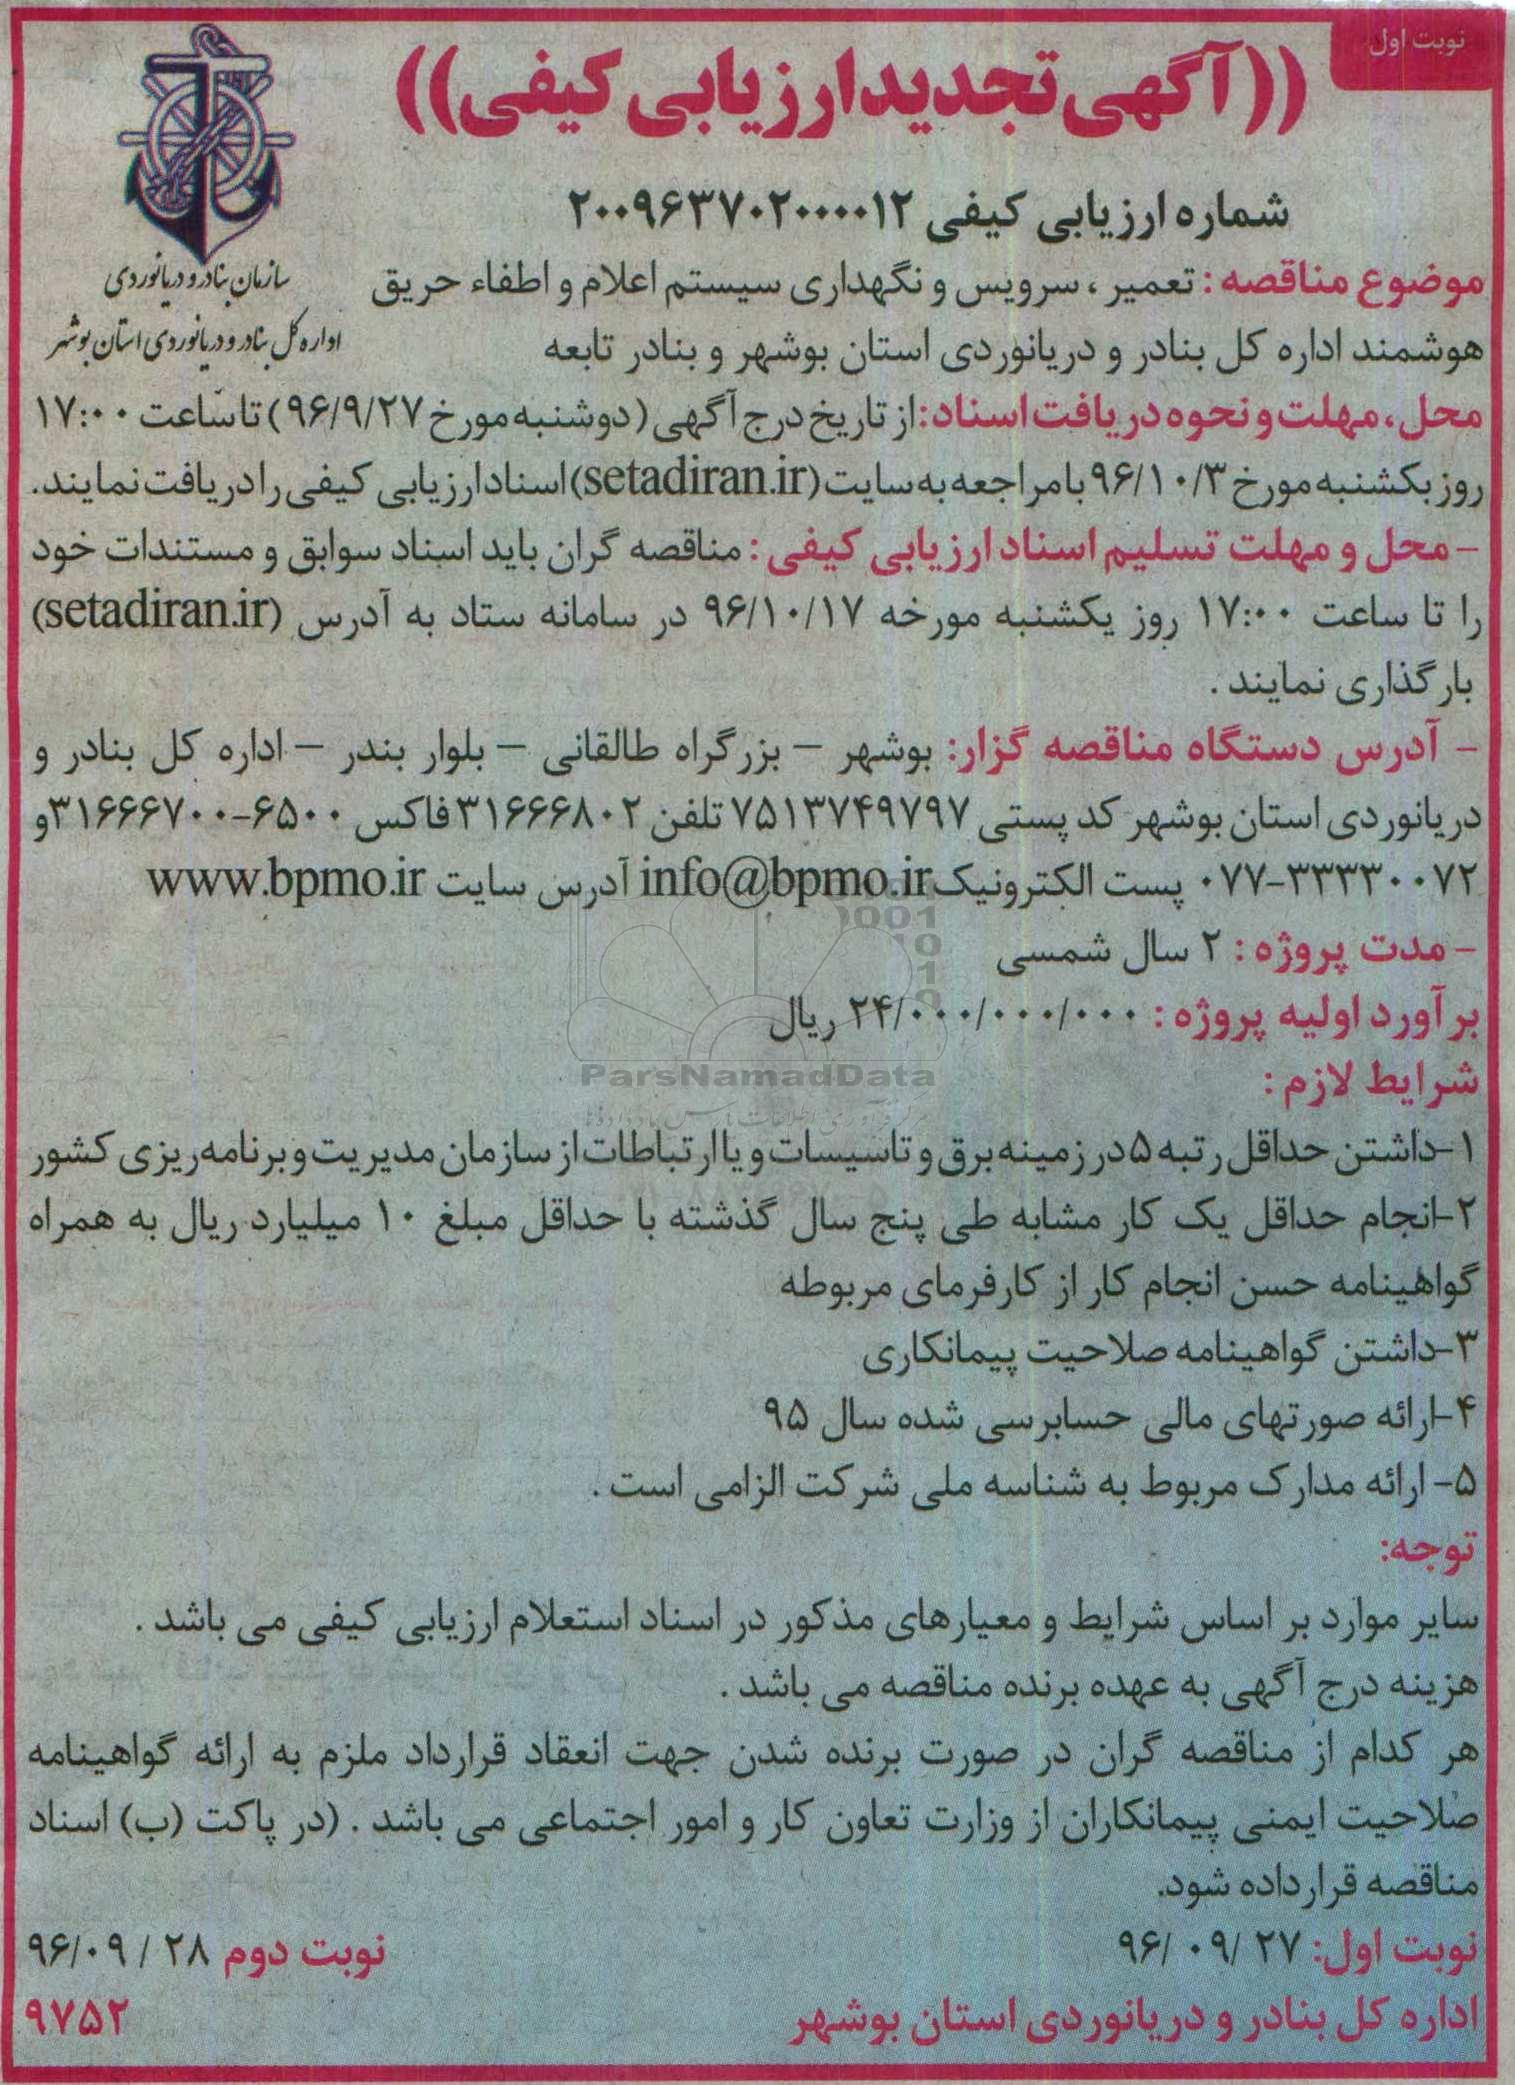 نوبت اول
((آگهی تجدید ارزیابی کیفی))
سازمان بنادر و دریانوردی
اداره کل بنادر و دریانوردی استان بوشهر
شماره ارزیابی کیفی ۲۰۰۹۶۳۷۰۲۰۰۰۰۱۲
موضوع مناقصه : تعمیر ، سرویس و نگهداری سیستم اعلام و اطفاء حریق
هوشمند اداره کل بنادر و دریانوردی استان بوشهر و بنادر تابعه
محل، مهلت و نحوه دریافت اسناد: از تاریخ درج آگهی (دوشنبه مورخ ۹۶/۹/۲۷) تا ساعت ۱۷:۰۰
روز یکشنبه مورخ ۹۶/۱۰/۳ با مراجعه به سایت (setadiran.ir) اسناد ارزیابی کیفی را دریافت نمایند.
- محل و مهلت تسلیم اسناد ارزیابی کیفی : مناقصه گران باید اسناد سوابق و مستندات خود
را تا ساعت ۱۷:۰۰ روز یکشنبه مورخه ۹۶/۱۰/۱۷ در سامانه ستاد به آدرس (setadiran.ir)
بارگذاری نمایند .
- آدرس دستگاه مناقصه گزار: بوشهر – بزرگراه طالقانی – بلوار بندر – اداره کل بنادر و
دریانوردی استان بوشهر کد پستی ۷۵۱۳۷۴۹۷۹۷ تلفن ۳۱۶۶۶۸۰۲ فاکس ۶۵۰۰-۳۱۶۶۶۷۰۰ و
۰۷۷-۳۳۳۳۰۰۷۲ پست الکترونیک info@bpmo.ir آدرس سایت www.bpmo.ir
- مدت پروژه : ۲ سال شمسی
برآورد اولیه پروژه : ۲۴/۰۰۰/۰۰۰/۰۰۰ ریال
ParsNamadData
شرایط لازم :
۱-داشتن حداقل رتبه ۵ در زمینه برق و تاسیسات و یا ارتباطات از سازمان مدیریت و برنامه ریزی کشور
۲-انجام حداقل یک کار مشابه طی پنج سال گذشته با حداقل مبلغ ۱۰ میلیارد ریال به همراه
گواهینامه حسن انجام کار از کارفرمای مربوطه
۳-داشتن گواهینامه صلاحیت پیمانکاری
۴-ارائه صورتهای مالی حسابرسی شده سال ۹۵
۵- ارائه مدارک مربوط به شناسه ملی شرکت الزامی است .
توجه:
سایر موارد بر اساس شرایط و معیارهای مذکور در اسناد استعلام ارزیابی کیفی می باشد .
هزینه درج آگهی به عهده برنده مناقصه می باشد .
هر کدام از مناقصه گران در صورت برنده شدن جهت انعقاد قرارداد ملزم به ارائه گواهینامه
صلاحیت ایمنی پیمانکاران از وزارت تعاون کار و امور اجتماعی می باشد . (در پاکت (ب) اسناد
مناقصه قرار داده شود.
نوبت اول: ۲۷ /۰۹ /۹۶
نوبت دوم ۲۸ / ۹۶/۰۹
اداره کل بنادر و دریانوردی استان بوشهر
۹۷۵۲